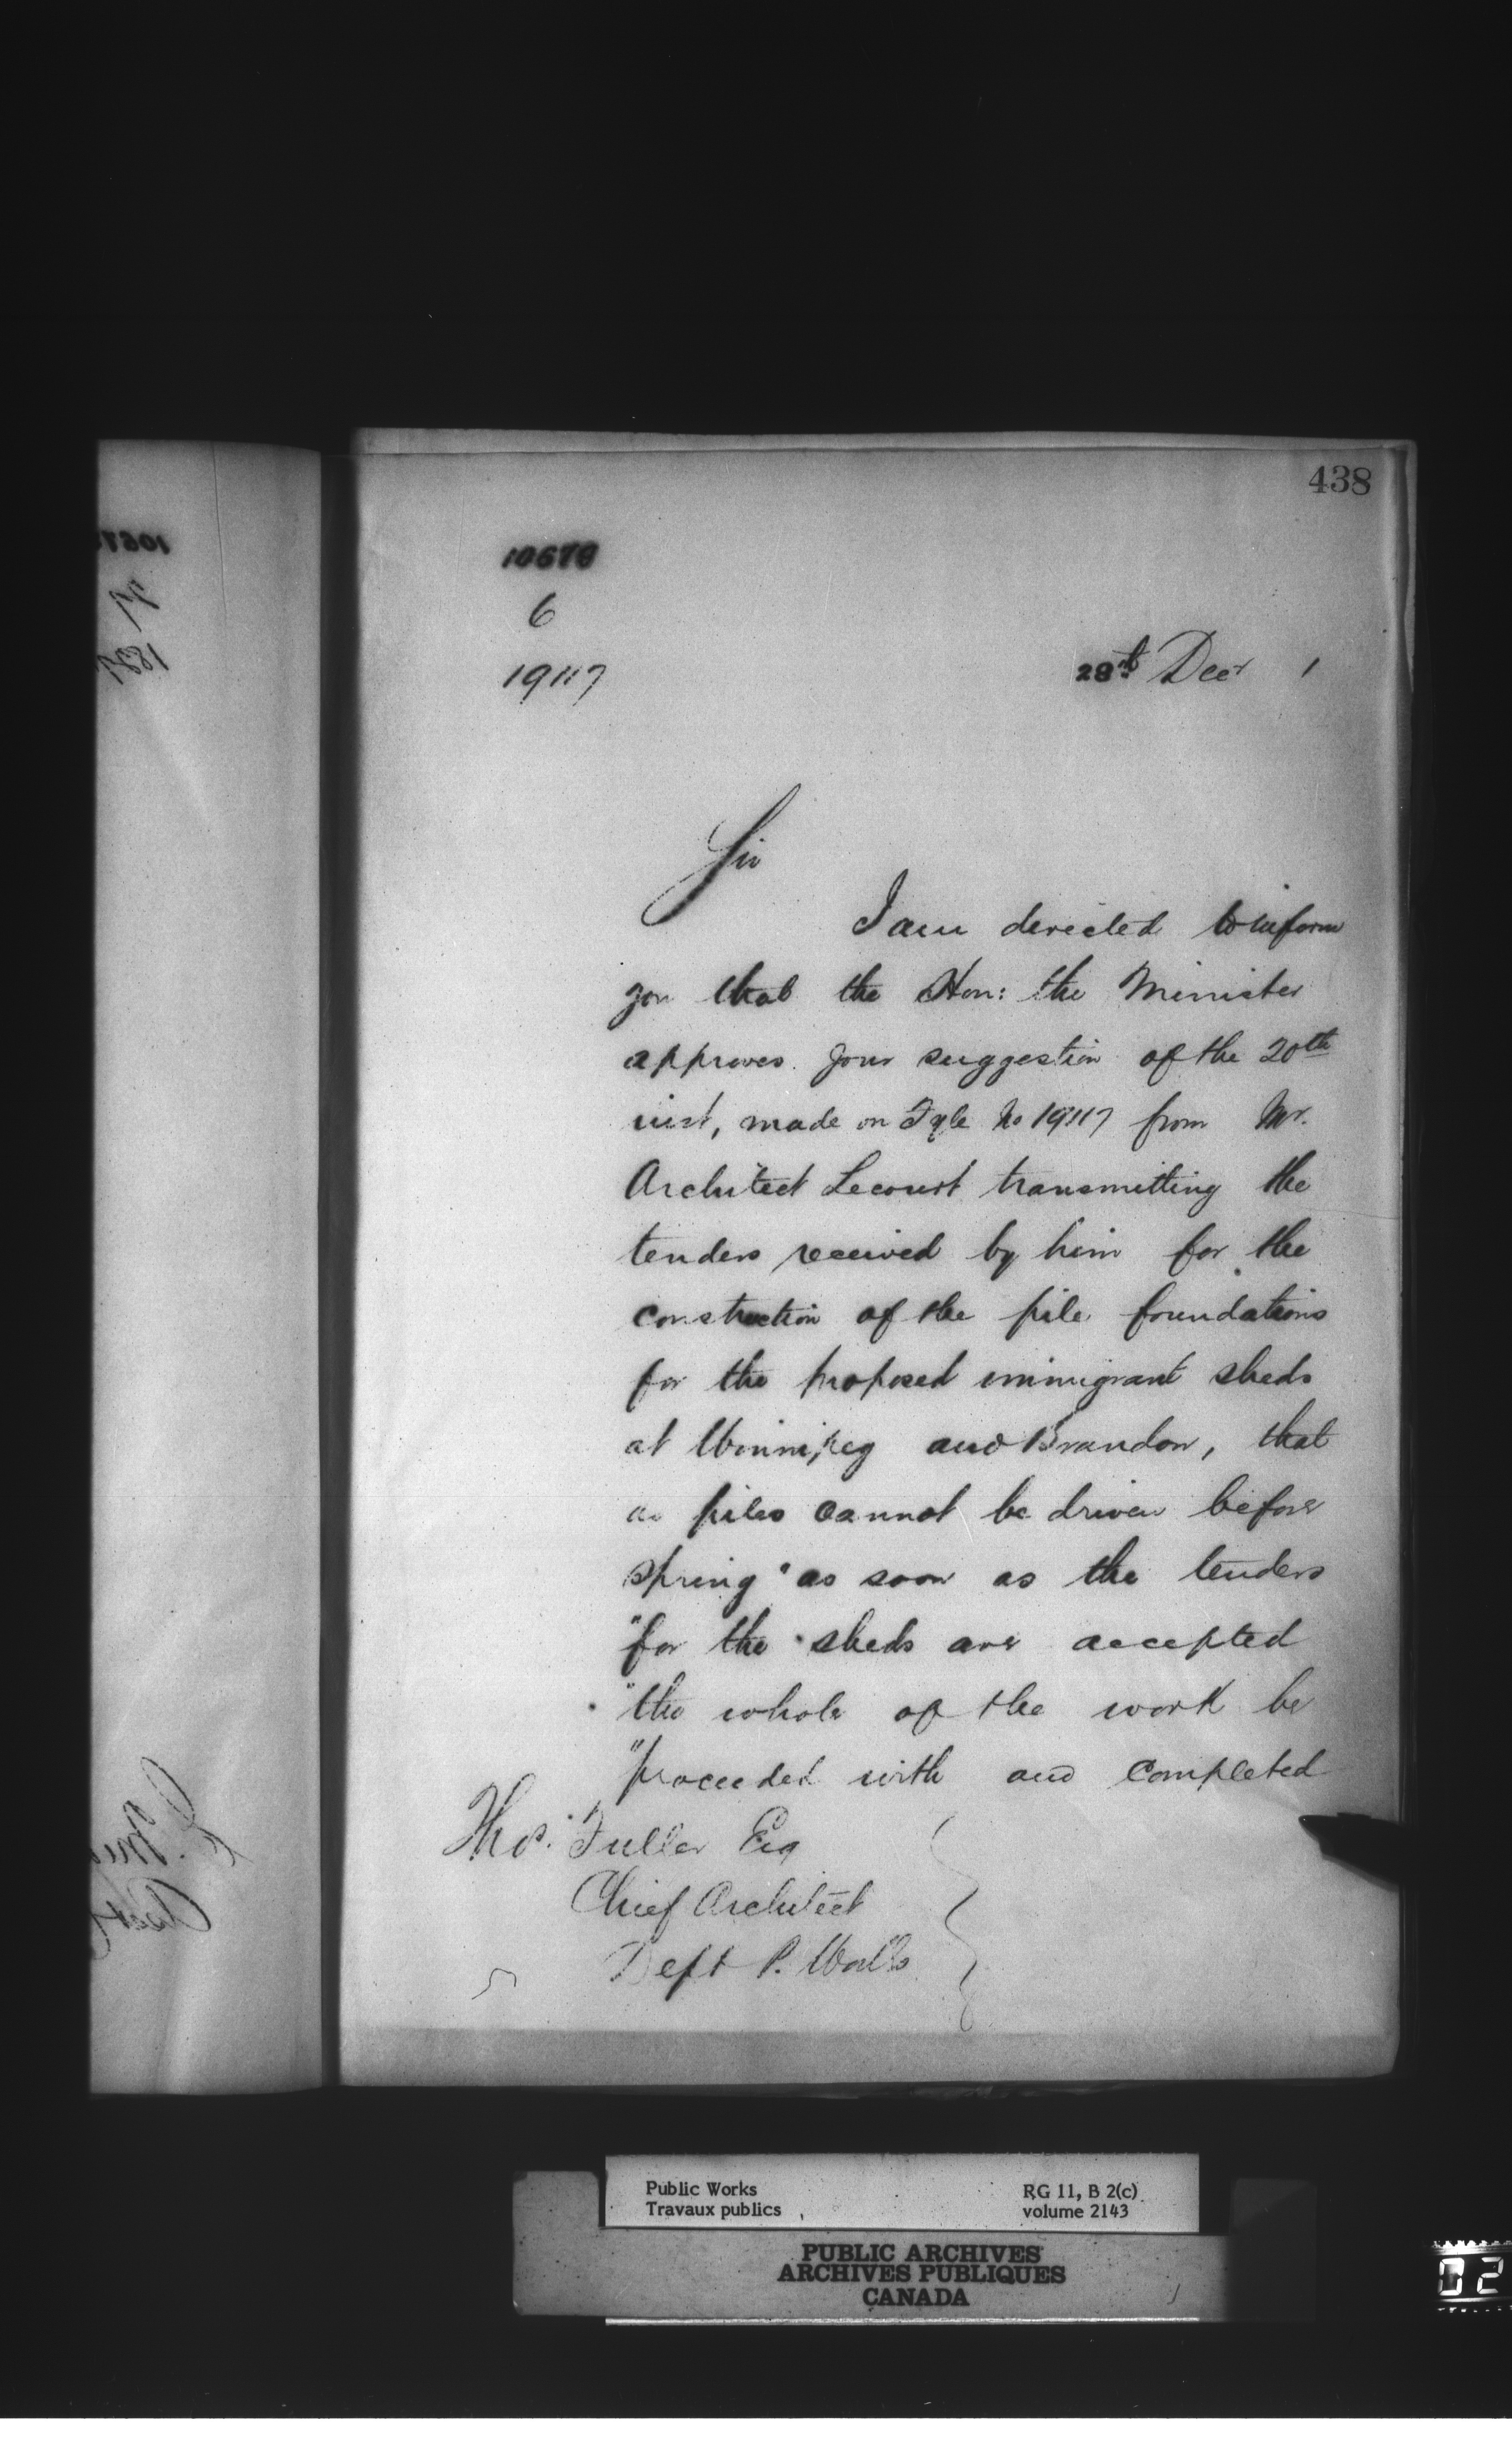 438
10678
6
19117
28th Decr 1
Sir
I am derected to inform
you that the Hon: the Minister
approves your suggestion of the 20th
inst, made on Fyle No 19117 from Mr.
Architect Lecourt transmitting the
tenders received by him for the
construction of the pile foundations
for the proposed immigrant sheds
at Winnipeg and Brandon, that
as piles cannot be driven before
spring "as soon as the tenders
"for the sheds are accepted
"the whole of the work be
"proceeded with and completed
Thos. Fuller Esq
Chief Architect
Dept P. Works
Public Works
Travaux publics
RG 11, B 2(c)
volume 2143
PUBLIC ARCHIVES
ARCHIVES PUBLIQUES
CANADA
02